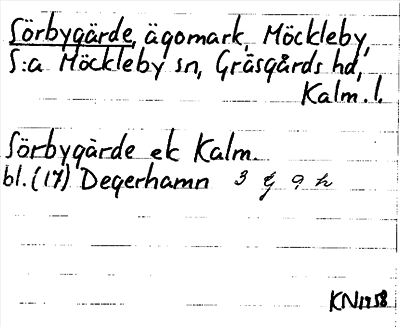 Sörbygärde, ägomark, Möckleby,
S:a Möckleby sn, Gräsgårds hd,
Kalm. l.
Sörbygärde ek Kalm.
bl. (17) Degerhamn 3 g 9 h
KN1958